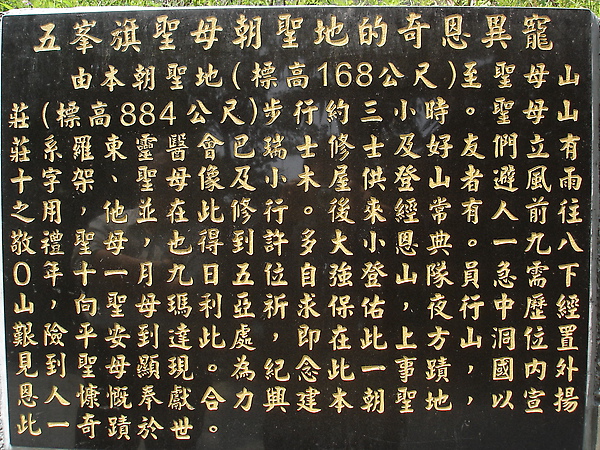 五峯旗聖母朝聖地的奇恩異寵
由本朝聖地(標高168公尺)至聖母山
莊(標高884公尺)步行約三小時。聖母山
莊系羅東靈醫會巴瑞士修士及好友們立有
十字架、聖母像及小木屋供登山者避風雨
之用,他並在此修行。後來經常有人前往
敬禮聖母,也得到許多大小恩典。一九八
0年十一月九日五位自強登山隊員急需下
山,向聖母瑪利亞祈求保佑,夜行中歷經
艱險平安到達此處,即在此上方山洞位置
見到聖母顯現。為紀念此一事蹟,國內外
恩人慷慨奉獻合力興建本朝聖地,以宣揚
此一奇蹟於世。